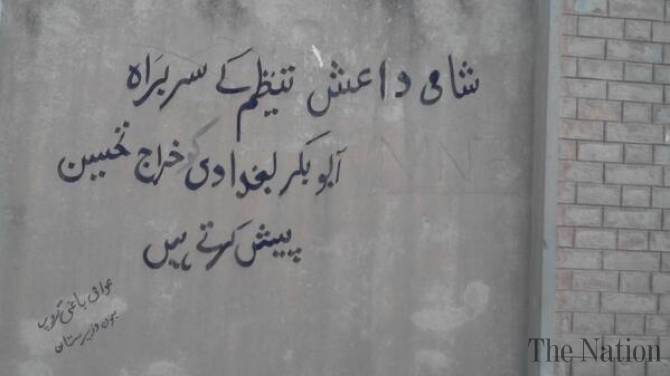 شامی داعش تنظیم کے سربراہ
ابوبکر بغدادی کو خراج تحسین
پیش کرتے ہیں
بنوں وزیرستان
The Nation